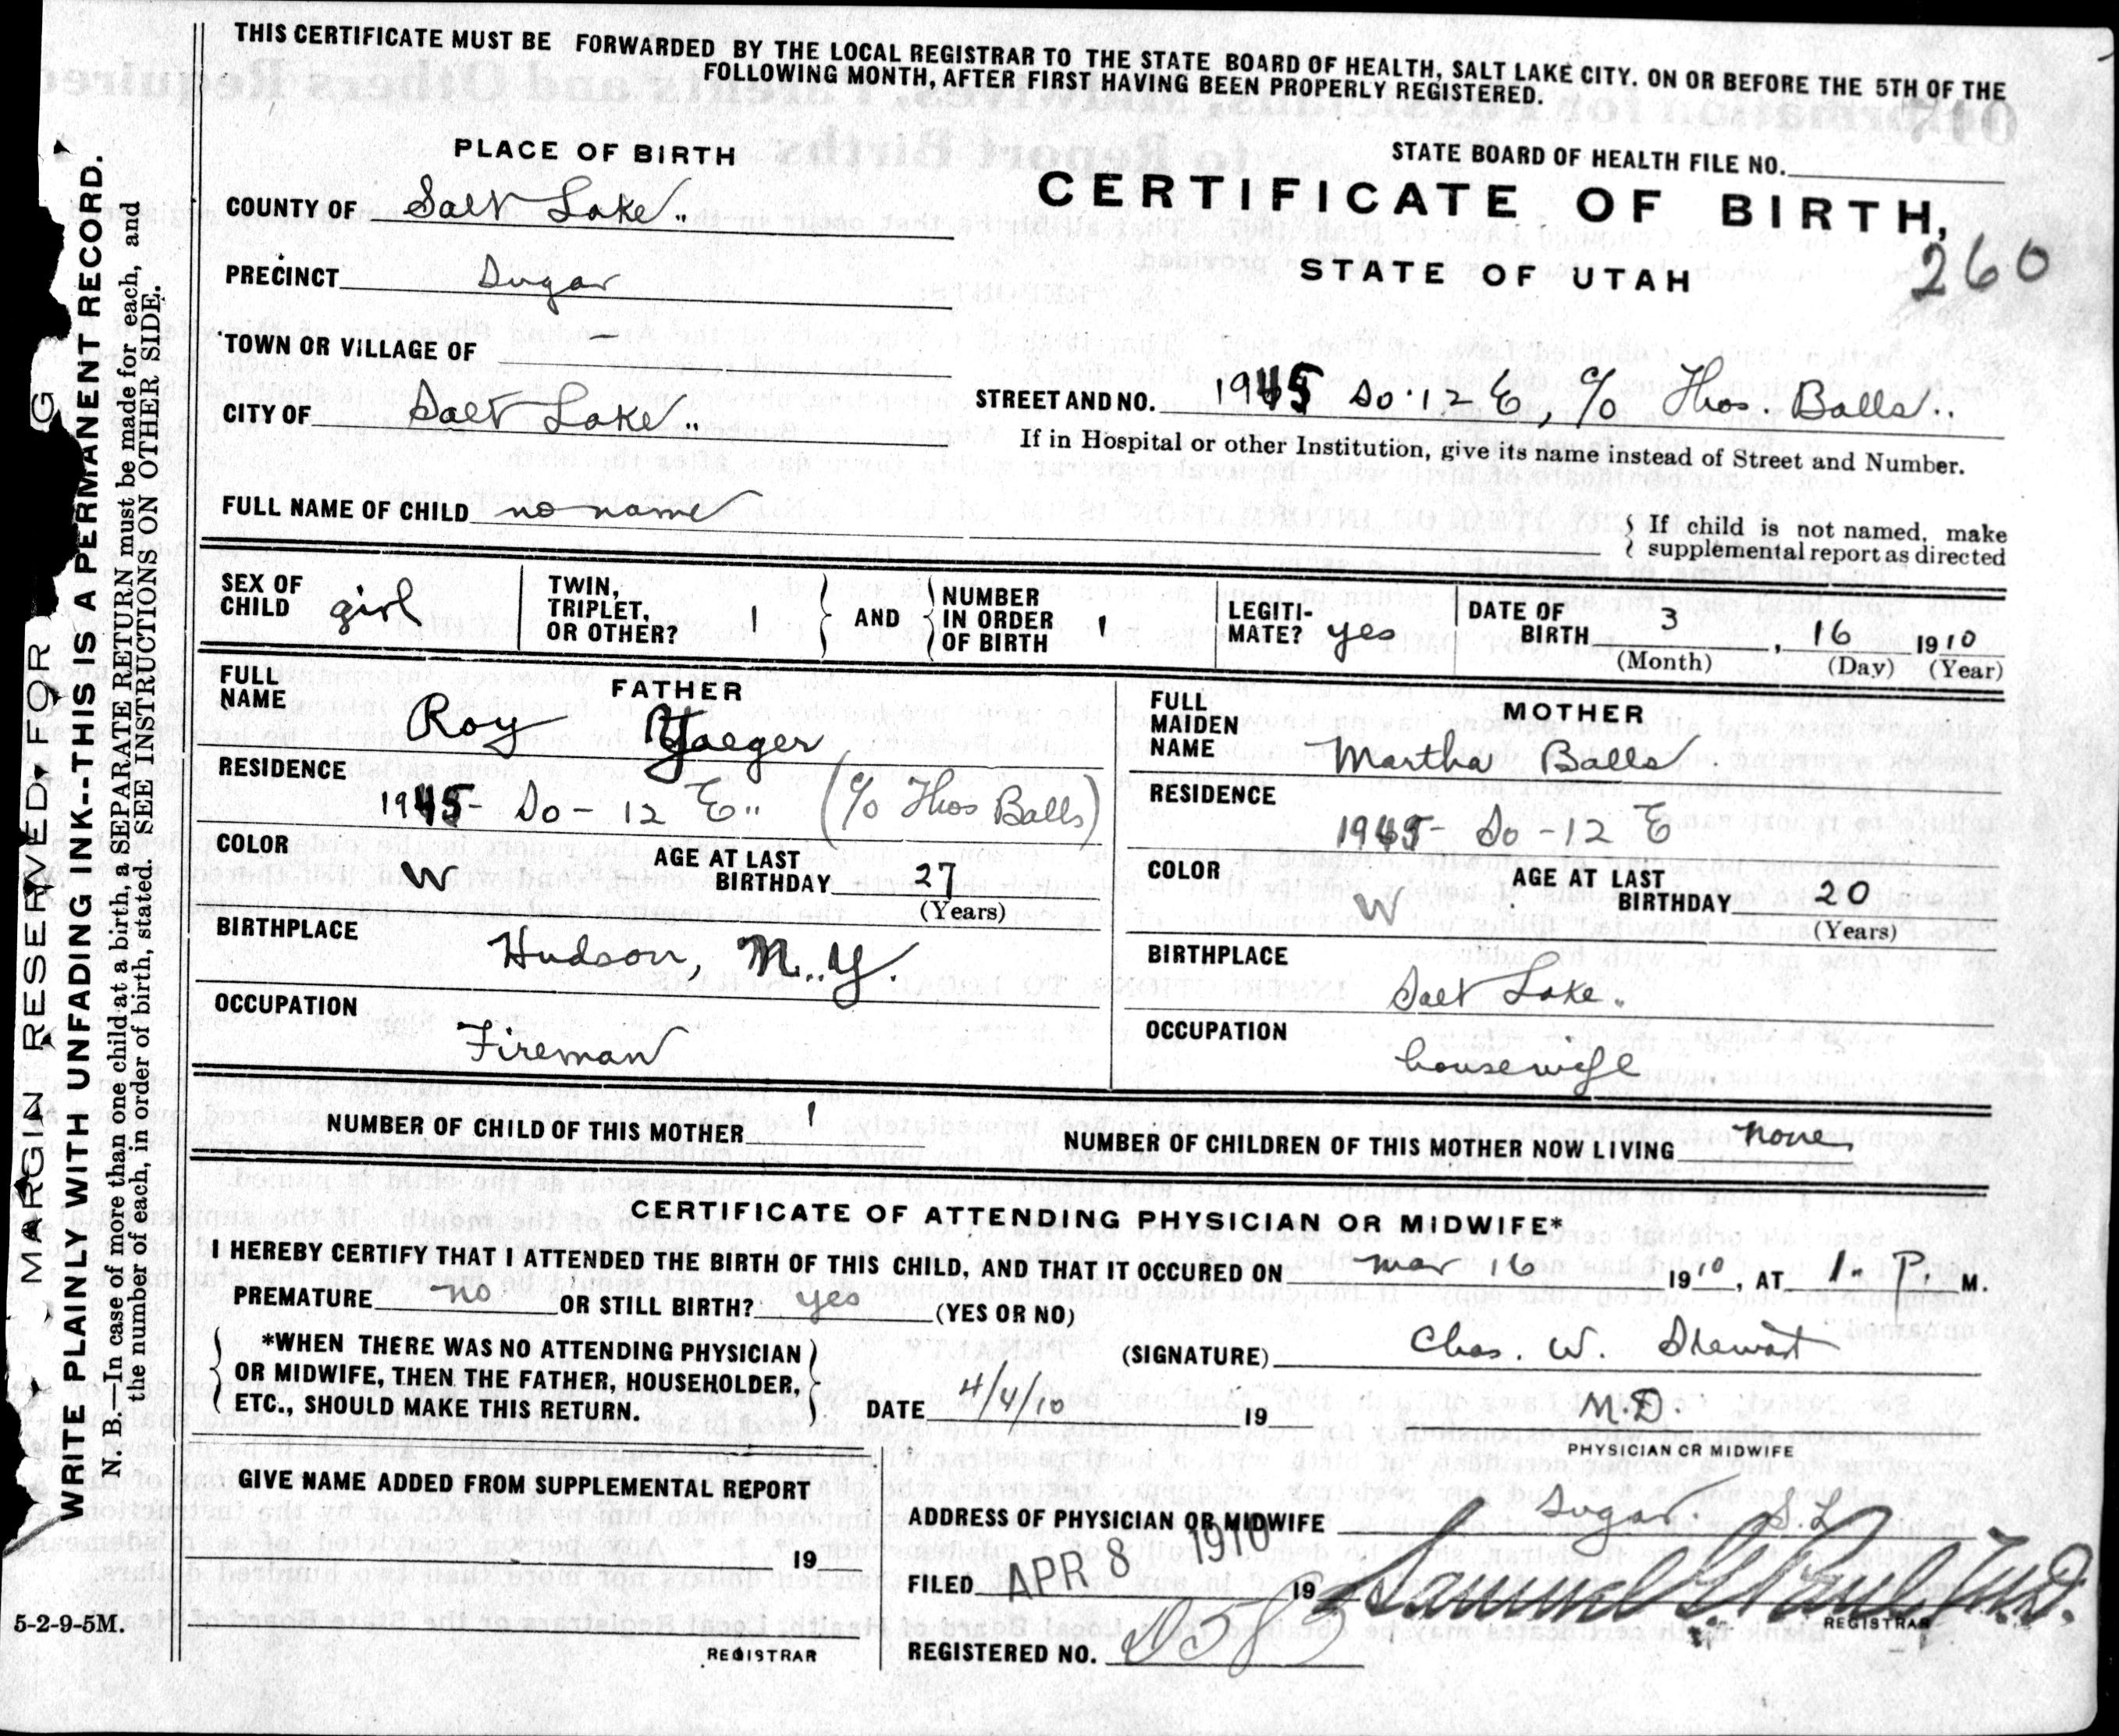 THIS CERTIFICATE MUST BE FORWARDED BY THE LOCAL REGISTRAR TO THE STATE BOARD OF HEALTH, SALT LAKE CITY. ON OR BEFORE THE 5TH OF THE
FOLLOWING MONTH, AFTER FIRST HAVING BEEN PROPERLY REGISTERED.
PLACE OF BIRTH
STATE BOARD OF HEALTH FILE NO.
COUNTY OF Salt Lake..
CERTIFICATE OF BIRTH,
PRECINCT Sugar
STATE OF UTAH
260
TOWN OR VILLAGE OF —
CITY OF Salt Lake..
STREET AND NO. 1945 So. 12 E, c/o Thos. Balls..
If in Hospital or other Institution, give its name instead of Street and Number.
FULL NAME OF CHILD no name
If child is not named, make
supplemental report as directed
SEX OF CHILD girl
TWIN, TRIPLET, OR OTHER? 1
AND
NUMBER IN ORDER OF BIRTH 1
LEGITIMATE? yes
DATE OF BIRTH 3, 16 1910
(Month) (Day) (Year)
FATHER
FULL NAME Roy Yaeger
RESIDENCE
1945- So - 12 E.. (c/o Thos Balls)
COLOR W
AGE AT LAST BIRTHDAY 27
(Years)
BIRTHPLACE
Hudson, N..Y.
OCCUPATION
Fireman
MOTHER
FULL MAIDEN NAME Martha Balls.
RESIDENCE
1945- So - 12 E
COLOR W.
AGE AT LAST BIRTHDAY 20
(Years)
BIRTHPLACE
Salt Lake..
OCCUPATION
housewife
NUMBER OF CHILD OF THIS MOTHER 1
NUMBER OF CHILDREN OF THIS MOTHER NOW LIVING none
CERTIFICATE OF ATTENDING PHYSICIAN OR MIDWIFE*
I HEREBY CERTIFY THAT I ATTENDED THE BIRTH OF THIS CHILD, AND THAT IT OCCURED ON mar 16 1910, AT 1- P. M.
PREMATURE no OR STILL BIRTH? yes (YES OR NO)
*WHEN THERE WAS NO ATTENDING PHYSICIAN
OR MIDWIFE, THEN THE FATHER, HOUSEHOLDER,
ETC., SHOULD MAKE THIS RETURN.
(SIGNATURE) Chas. W. Stewart
DATE 4/4/10 19
M.D.
PHYSICIAN OR MIDWIFE
GIVE NAME ADDED FROM SUPPLEMENTAL REPORT
19
REGISTRAR
ADDRESS OF PHYSICIAN OR MIDWIFE Sugar. S.L
FILED APR 8 1910 19
Samuel G. Paul M.D.
REGISTRAR
REGISTERED NO.
5-2-9-5M.
MARGIN RESERVED FOR
WRITE PLAINLY WITH UNFADING INK--THIS IS A PERMANENT RECORD.
N. B.—In case of more than one child at a birth, a SEPARATE RETURN must be made for each, and
the number of each, in order of birth, stated. SEE INSTRUCTIONS ON OTHER SIDE.